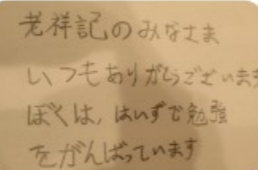 老祥記のみなさま
いつもありがとうございます
ぼくは、はいずで勉強
をがんばっています